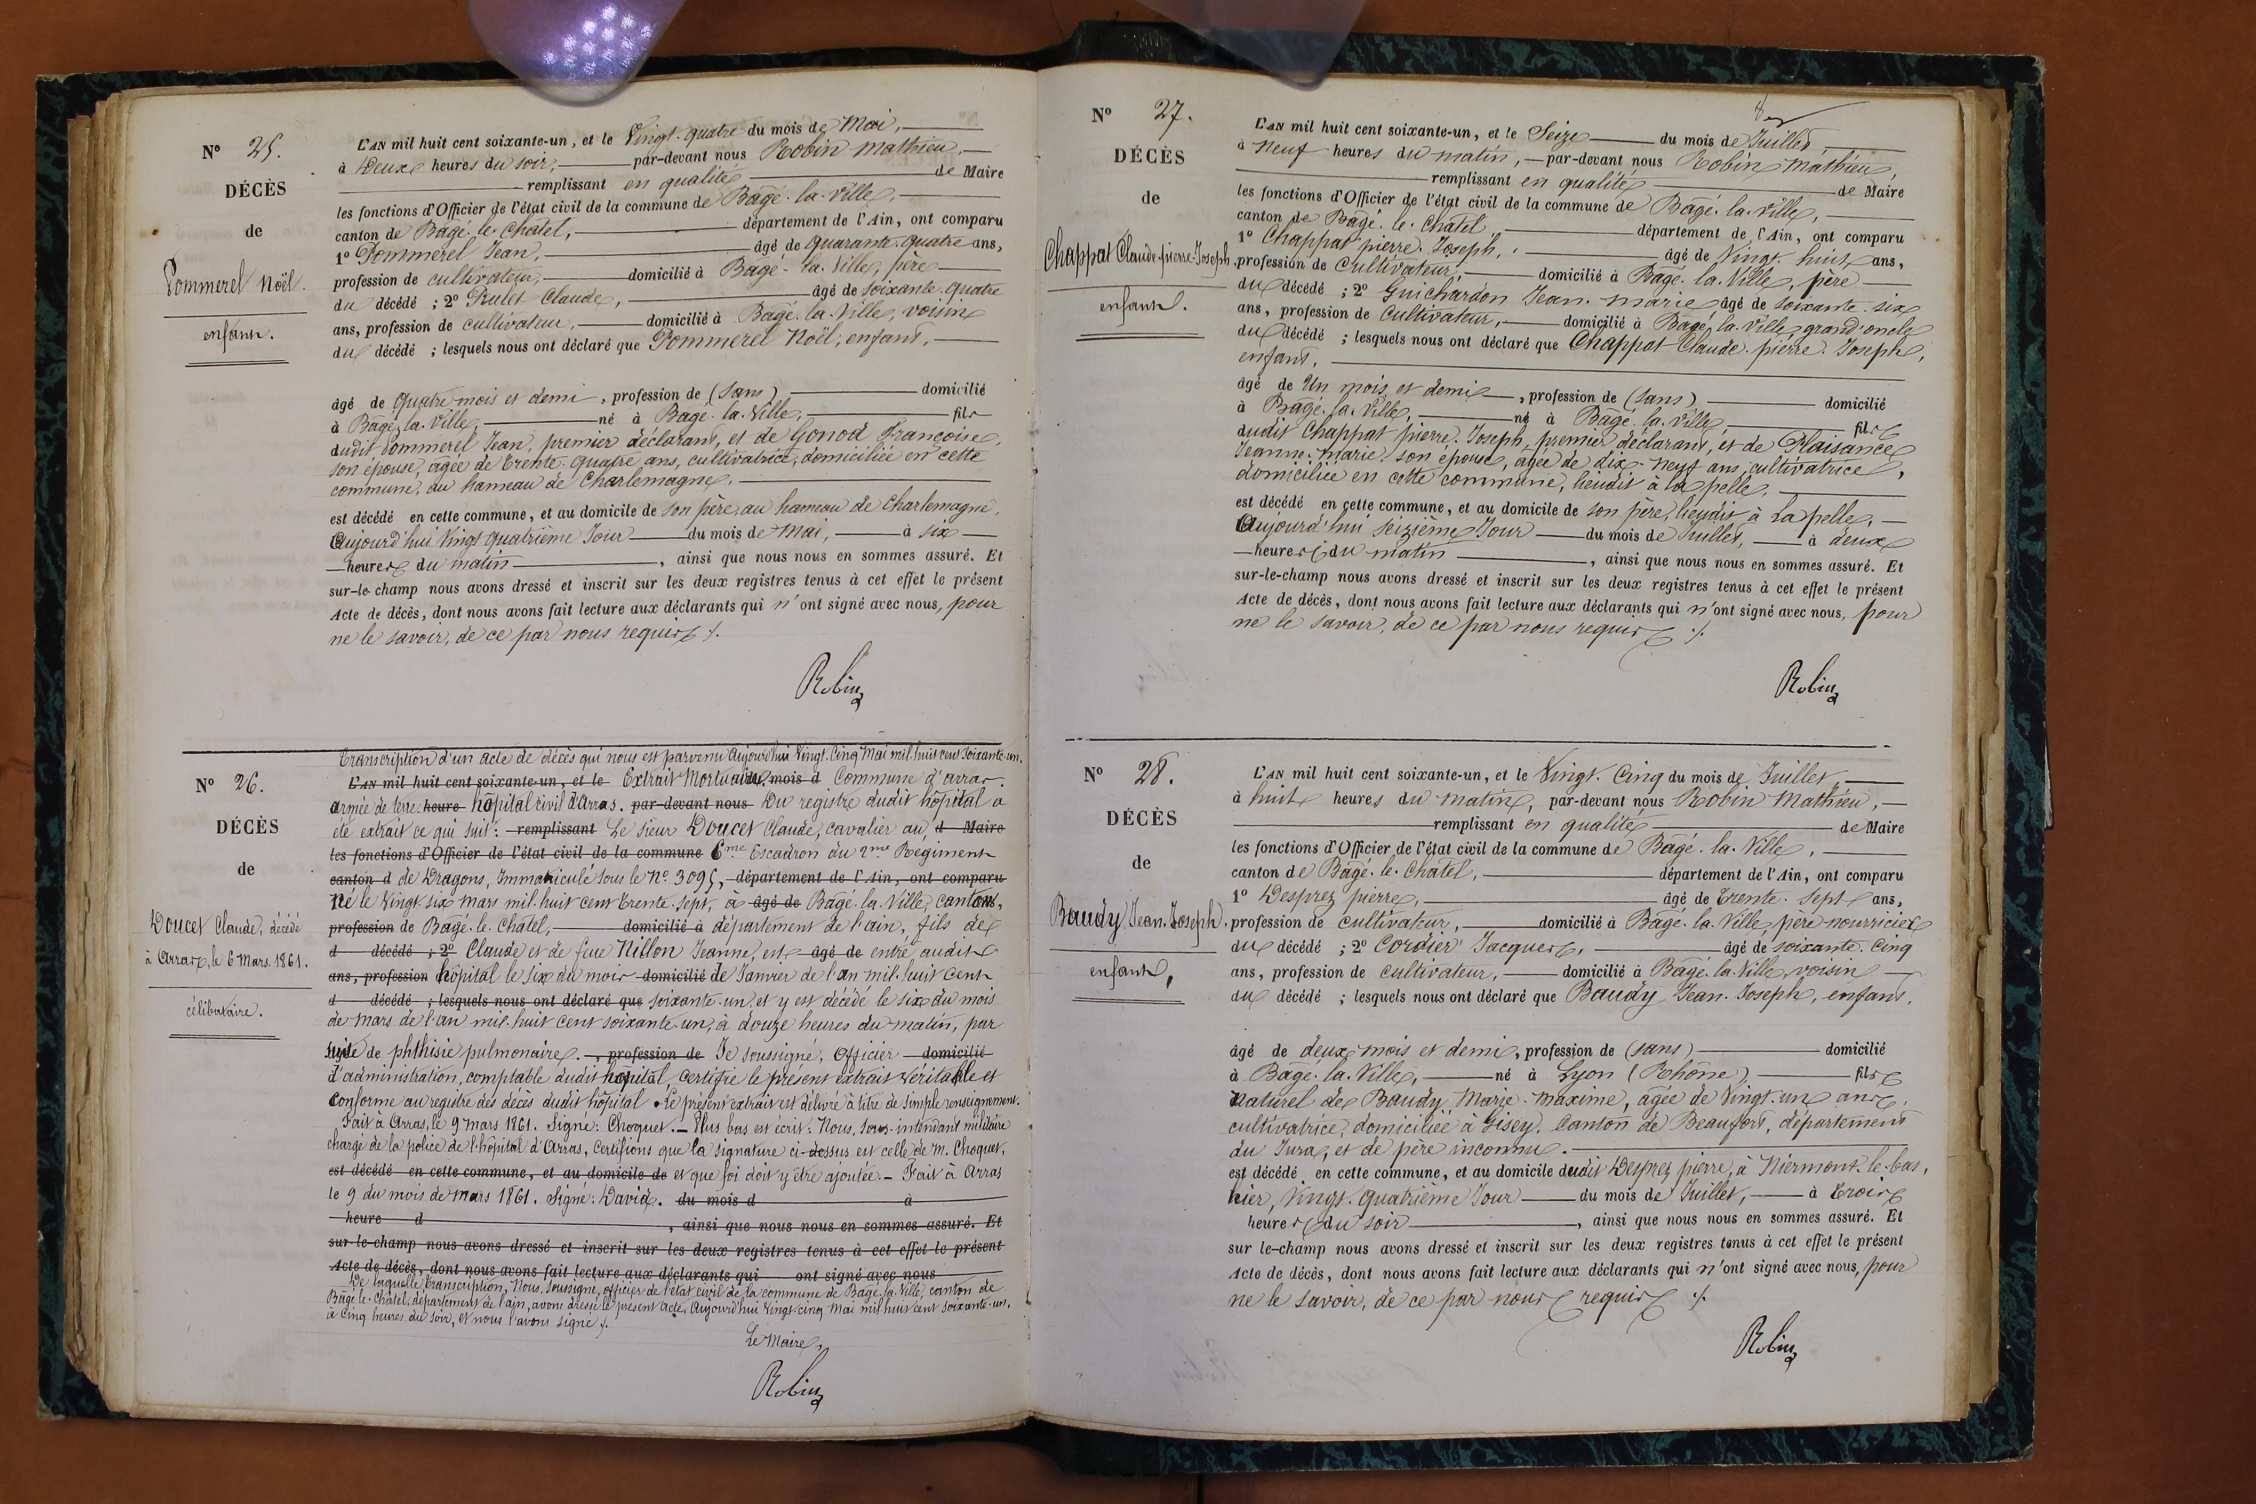 N° 25.
DÉCÈS
de
Pommerel Noël.
enfant.
L'AN mil huit cent soixante-un, et le Vingt-quatre du mois de Mai,
à Deux heures du soir, par-devant nous Robin Mathieu,
remplissant en qualité de Maire
les fonctions d'Officier de l'état civil de la commune de Bagé-la-Ville,
canton de Bagé-le-Chatel, département de l'Ain, ont comparu
1° Pommerel Jean, âgé de quarante-quatre ans,
profession de cultivateur, domicilié à Bagé-la-Ville, père
du décédé ; 2° Rulet Claude, âgé de soixante-quatre
ans, profession de cultivateur, domicilié à Bagé-la-Ville, voisin
du décédé ; lesquels nous ont déclaré que Pommerel Noël, enfant,
âgé de quatre mois et demi, profession de (sans) domicilié
à Bagé-la-Ville, né à Bagé-la-Ville, fils
dudit Pommerel Jean, premier déclarant, et de Gonod Françoise,
son épouse, âgée de trente-quatre ans, cultivatrice, domiciliée en cette
commune, au hameau de Charlemagne,
est décédé en cette commune, et au domicile de son père, au hameau de Charlemagne,
Aujourd'hui Vingt-quatrième Jour du mois de Mai, à six
heures du matin, ainsi que nous nous en sommes assuré. Et
sur-le-champ nous avons dressé et inscrit sur les deux registres tenus à cet effet le présent
Acte de décès, dont nous avons fait lecture aux déclarants qui n'ont signé avec nous, pour
ne le savoir, de ce par nous requis ./.
Robin
N° 26.
DÉCÈS
de
Doucet Claude, décédé
à Arras, le 6 Mars 1861.
célibataire.
Transcription d'un acte de décès qui nous est parvenu aujourd'hui Vingt-Cinq Mai mil-huit cent soixante-un.
L'AN mil huit cent soixante-un, et le Extrait Mortuaire. mois d Commune d'arras.
armée de terre heure hôpital civil d'Arras. par-devant nous Du registre dudit hôpital a
été extrait ce qui suit : remplissant Le sieur Doucet Claude, cavalier au d Maire
les fonctions d'Officier de l'état civil de la commune 6me Escadron du 2me Regiment
canton d de Dragons, Immatriculé sous le N° 3095, département de l'Ain, ont comparu
Né le Vingt six mars mil-huit cent trente-sept, à âgé de Bagé-la-Ville, canton,
profession de Bagé-le-Chatel, domicilié à département de l'ain, fils de
d décédé ; 2° Claude et de feue Nillon Jeanne, est âgé de entré audit
ans, profession hôpital le six du mois domicilié de Janvier de l'an mil-huit cent
d décédé ; lesquels nous ont déclaré que soixante-un, et y est décédé le six du mois
de Mars de l'an mil-huit cent soixante-un, à douze heures du matin, par
suite de phthisie pulmonaire. , profession de Je soussigné, Officier domicilié
d'administration, comptable dudit hôpital, certifie le présent extrait véritable et
conforme au registre des décès dudit hôpital. Le présent extrait est délivré à titre de simple renseignement.
Fait à Arras, le 9 mars 1861. Signé : Choquet. Plus bas est écrit : Nous, sous-intendant militaire
chargé de la police de l'hôpital d'Arras, certifions que la signature ci-dessus est celle de M. Choquet,
est décédé en cette commune, et au domicile de et que foi doit y être ajoutée. Fait à Arras
le 9 du mois de Mars 1861. Signé : David. du mois d à
heure d , ainsi que nous nous en sommes assuré. Et
sur-le-champ nous avons dressé et inscrit sur les deux registres tenus à cet effet le présent
Acte de décès, dont nous avons fait lecture aux déclarants qui ont signé avec nous
De laquelle transcription, Nous, soussigné, officier de l'état civil de la commune de Bagé-la-Ville, canton de
Bagé-le-Chatel, département de l'ain, avons dressé le présent acte, Aujourd'hui Vingt-cinq Mai mil huit cent soixante-un,
à Cinq heures du soir, et nous l'avons signé ./.
Le Maire,
Robin
N° 27.
DÉCÈS
de
Chappat Claude-pierre-Joseph
enfant.
L'AN mil huit cent soixante-un, et le Seize du mois de Juillet,
à Neuf heures du matin, par-devant nous Robin Mathieu,
remplissant en qualité de Maire
les fonctions d'Officier de l'état civil de la commune de Bagé-la-Ville,
canton de Bagé-le-Chatel département de l'Ain, ont comparu
1° Chappat pierre-Joseph, âgé de Vingt-huit ans,
profession de Cultivateur, domicilié à Bagé-la-Ville, père
du décédé ; 2° Guichardon Jean-marie âgé de soixante-six
ans, profession de Cultivateur, domicilié à Bagé-la-Ville, grand'oncle
du décédé ; lesquels nous ont déclaré que Chappat Claude-pierre-Joseph,
enfant,
âgé de Un mois et demi, profession de (sans) domicilié
à Bagé-la-Ville, né à Bagé-la-Ville, fils
dudit Chappat pierre-Joseph, premier déclarant, et de Plaisance
Jeanne-Marie son épouse, âgée de dix-neuf ans, cultivatrice,
domiciliée en cette commune, lieudit à la pelle,
est décédé en cette commune, et au domicile de son père, lieudit à La pelle,
Aujourd'hui seizième Jour du mois de Juillet, à deux
heures du matin, ainsi que nous nous en sommes assuré. Et
sur-le-champ nous avons dressé et inscrit sur les deux registres tenus à cet effet le présent
Acte de décès, dont nous avons fait lecture aux déclarants qui n'ont signé avec nous, pour
ne le savoir, de ce par nous requis ./.
Robin
N° 28.
DÉCÈS
de
Baudy Jean-Joseph.
enfant,
L'AN mil huit cent soixante-un, et le Vingt-Cinq du mois de Juillet,
à huit heures du matin, par-devant nous Robin Mathieu,
remplissant en qualité de Maire
les fonctions d'Officier de l'état civil de la commune de Bagé-la-Ville,
canton de Bagé-le-Chatel, département de l'Ain, ont comparu
1° Desprez pierre, âgé de trente-sept ans,
profession de cultivateur, domicilié à Bagé-la-Ville, père nourricier
du décédé ; 2° Cordier Jacques, âgé de soixante-cinq
ans, profession de cultivateur, domicilié à Bagé-la-Ville, voisin
du décédé ; lesquels nous ont déclaré que Baudy Jean-Joseph, enfant,
âgé de deux mois et demi, profession de (sans) domicilié
à Bagé-la-Ville, né à Lyon (Rhône) fils
naturel de Baudy Marie-Maxime, âgée de Vingt-un ans,
cultivatrice, domiciliée à Gisey, Canton de Beaufort, département
du Jura, et de père inconnu.
est décédé en cette commune, et au domicile dudit Desprez pierre, à Niermont-le-bas,
hier, Vingt-quatrième Jour du mois de Juillet, à trois
heures du soir, ainsi que nous nous en sommes assuré. Et
sur le-champ nous avons dressé et inscrit sur les deux registres tenus à cet effet le présent
Acte de décès, dont nous avons fait lecture aux déclarants qui n'ont signé avec nous, pour
ne le savoir, de ce par nous requis ./.
Robin